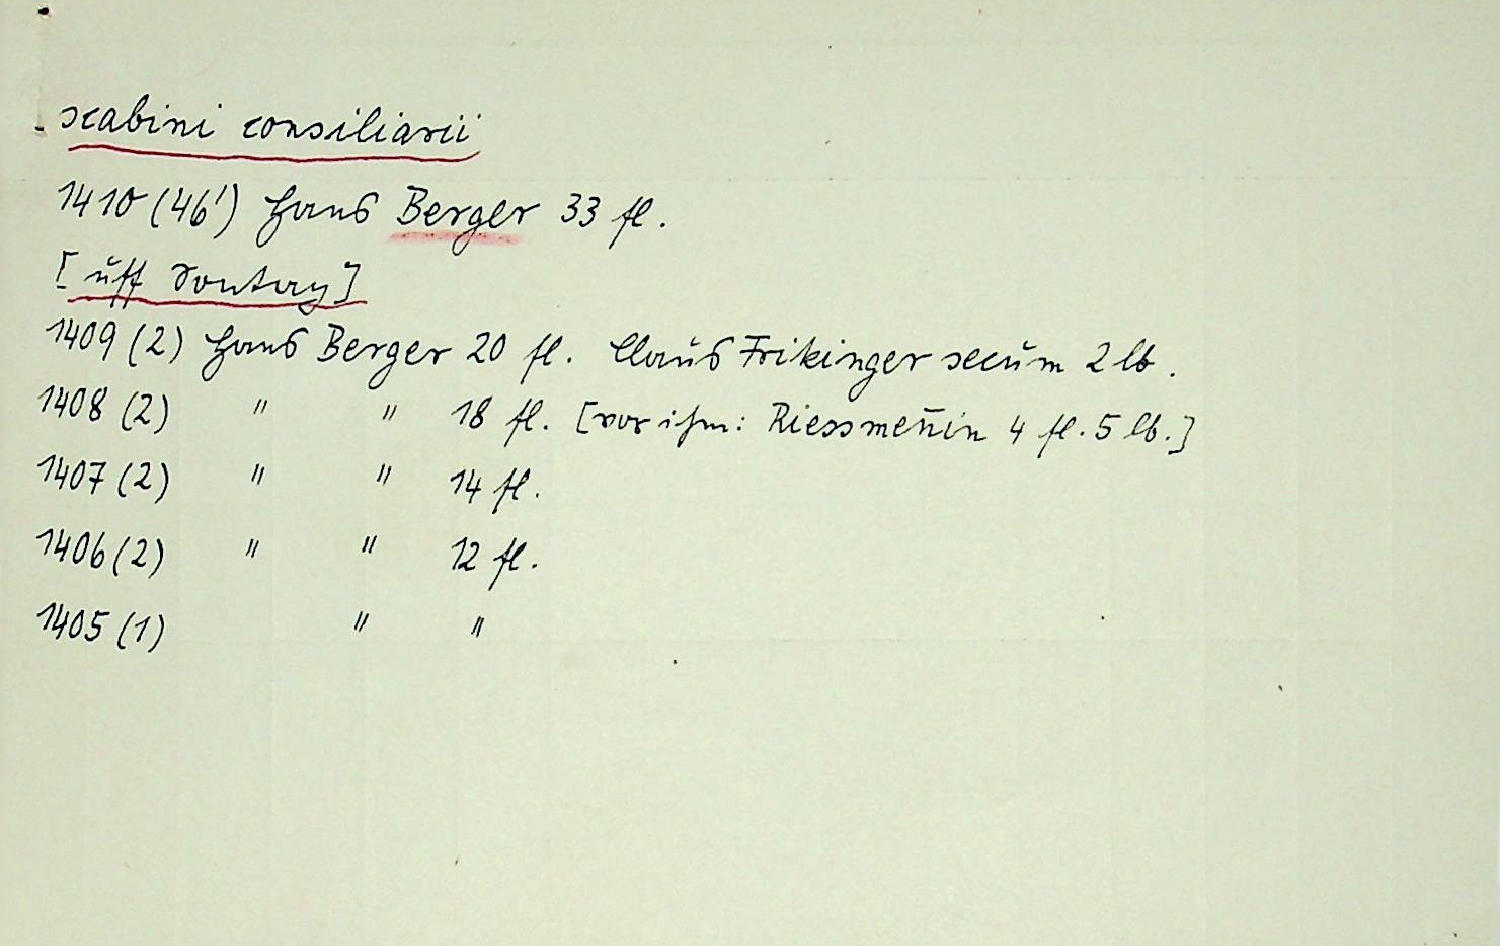 scabini consiliarii
1410 (46') Hans Berger 33 fl.
[uff Sontag]
1409 (2) Hans Berger 20 fl. Claus Frikinger secum 2 lb.
1408 (2) " " 18 fl. [vor ihm: Riessmen̄in 4 fl. 5 lb.]
1407 (2) " " 14 fl.
1406 (2) " " 12 fl.
1405 (1) " "